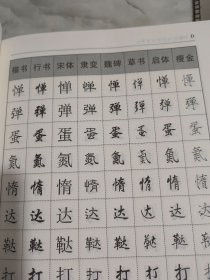 楷书 行书 宋体 隶变 魏碑 草书 启体 瘦金
惮 惮 惮 惮 惮 惮 惮 惮
弹 弹 弹 弹 弹 弹 弹 弹
蛋 蛋 蛋 蛋 蛋 蛋 蛋 蛋
氮 氮 氮 氮 氮 氮 氮 氮
惰 惰 惰 惰 惰 惰 惰 惰
达 达 达 达 达 达 达 达
鞑 鞑 鞑 鞑 鞑 鞑 鞑 鞑
打 打 打 打 打 打 打 打